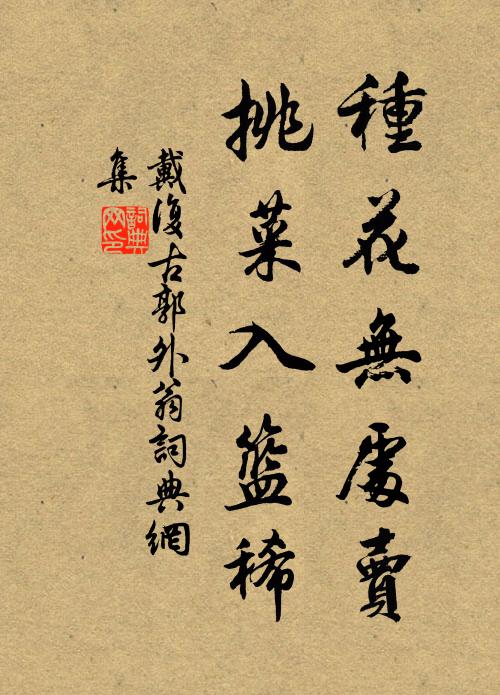 種花無處賣
挑菜入籃稀
戴復古郭外翁詞典網
集
詞典
网印